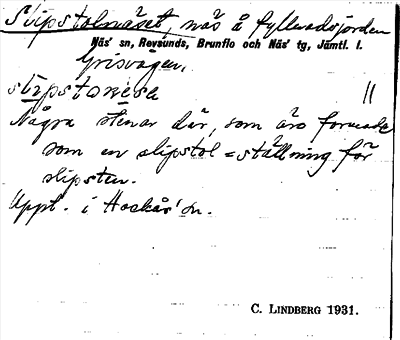 Slipstolnäset, näs å Fyllnadsjorden
Näs' sn, Revsunds, Brunflo och Näs' tg, Jämtl. l.
Grisvågen.
slipstonesa "
Några stenar där, som äro formade
som en slipstol = ställning för
slipsten.
Uppt. i Hackås' sn.
C. LINDBERG 1931.